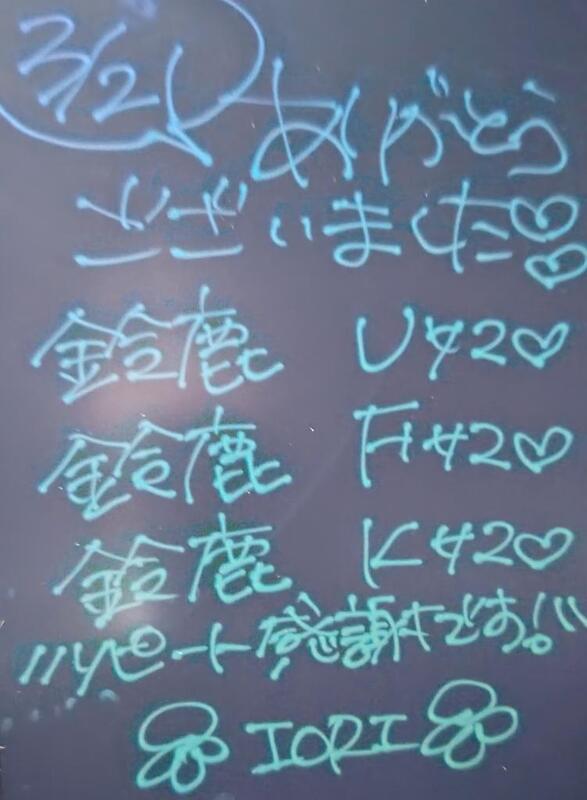 3/2 ありがとう
ございました♡♡
鈴鹿 Uサン♡
鈴鹿 Hサン♡
鈴鹿 Kサン♡
リピート感謝です!!
IORI